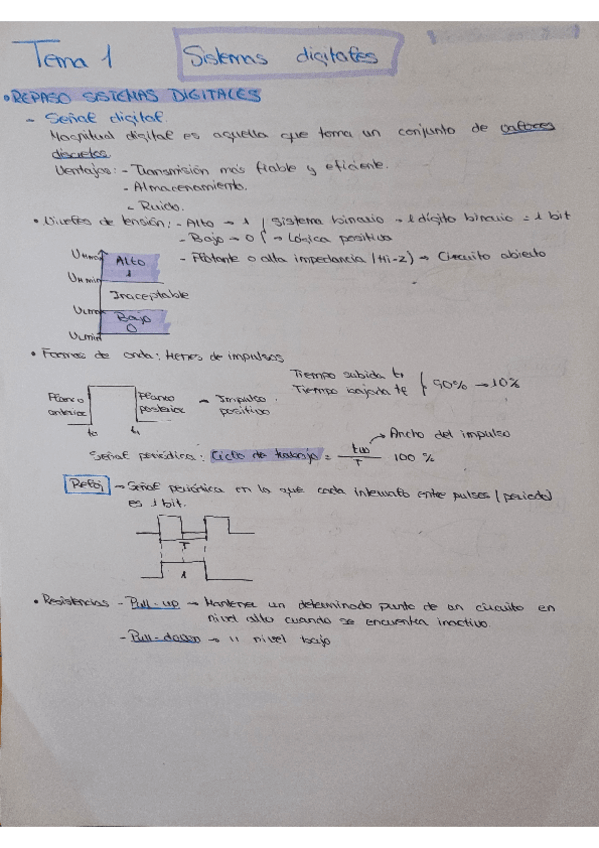 Tema 1 Sistemas digitales
• REPASO SISTEMAS DIGITALES
- Señal digital
Magnitud digital es aquella que toma un conjunto de valores
discretos.
Ventajas: - Transmisión más fiable y eficiente.
- Almacenamiento.
- Ruido.
• Niveles de tensión: - Alto → 1 Sistema binario → 1 dígito binario = 1 bit
- Bajo → 0 → Lógica positiva
- Flotante o alta impedancia (Hi-Z) → Circuito abierto
VHmax Alto
1
VHmin
Inaceptable
VLmax Bajo
0
VLmin
• Formas de onda: trenes de impulsos
Tiempo subida tr
Tiempo bajada tf 90% → 10%
Flanco anterior Flanco posterior → Impulso positivo
t0 t1
Ancho del impulso
Señal periódica: Ciclo de trabajo = tw / T 100 %
Reloj → Señal periódica en la que cada intervalo entre pulsos (periodo)
es 1 bit.
T
1
• Resistencias - Pull-up → Mantener un determinado punto de un circuito en
nivel alto cuando se encuentra inactivo.
- Pull-down → " nivel bajo